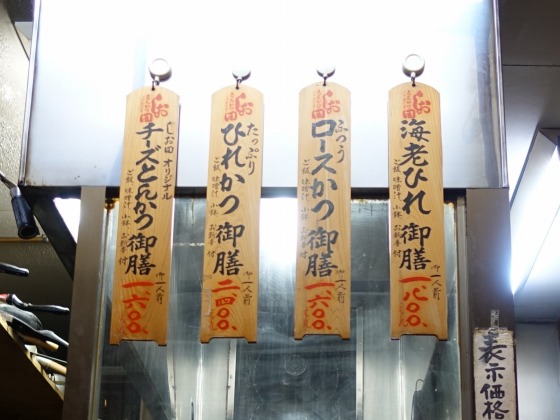 しお田
海老ひれ御膳
ご飯 味噌汁 小鉢 お新香付
御一人前
一、八〇〇、
しお田
ふつう
ロースかつ御膳
ご飯 味噌汁 小鉢 お新香付
御一人前
一、六〇〇、
しお田
たっぷり
ひれかつ御膳
ご飯 味噌汁 小鉢 お新香付
御一人前
二、四〇〇、
しお田
しお田 オリジナル
チーズとんかつ御膳
ご飯 味噌汁 小鉢 お新香付
御一人前
一、六〇〇、
表示価格